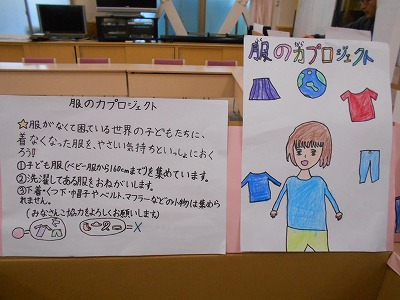 服の力プロジェクト
☆服がなくて困っている世界の子どもたちに、
着なくなった服を、やさしい気持ちといっしょにおく
ろう!
①子ども服(ベビー服から160cmまで)を集めています。
②洗濯してある服をおねがいします。
③下着・くつ下・帽子やベルト、マフラーなどの小物は集め
られません。
(みなさんご協力をよろしくお願いします)
=X
服の力プロジェクト